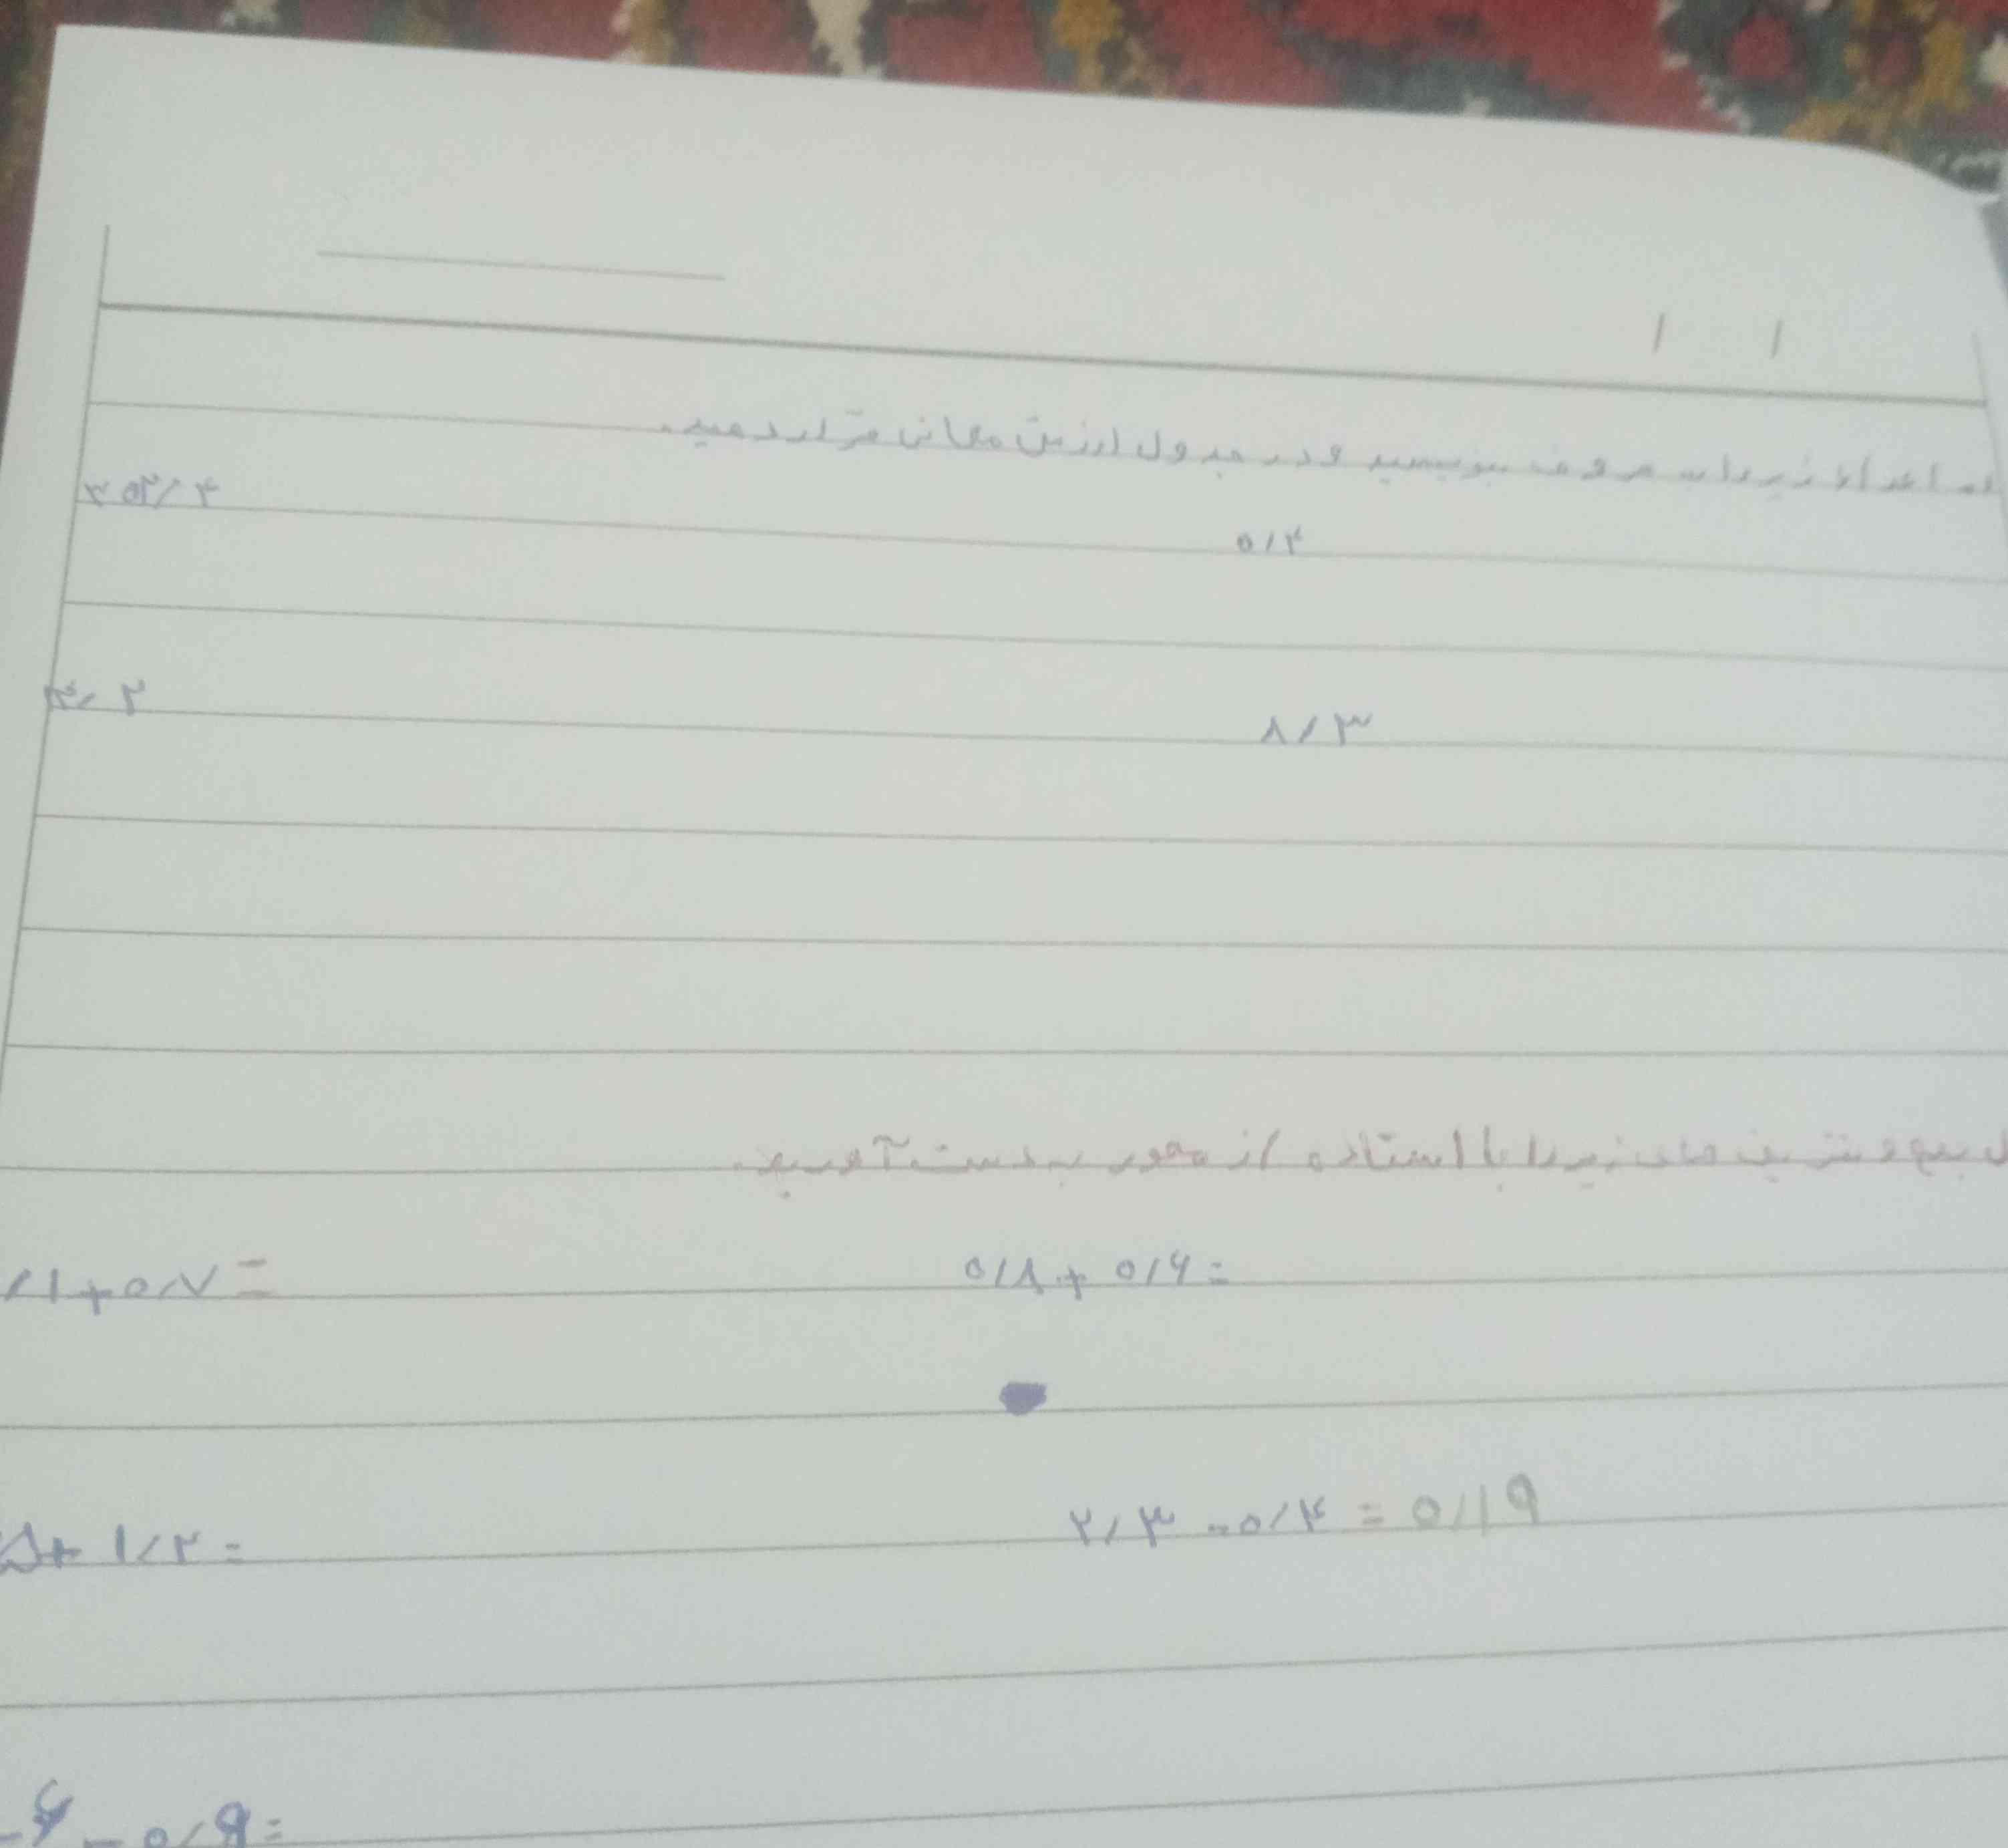 اعداد زیر را به حروف بنویسید و در جدول ارزش مکانی قرار دهید.
۰/۴
۸/۳
جمع و تفریق های زیر را با استفاده از محور به دست آورید.
۰/۸ + ۰/۶ = /۱ + ۰/۷ =
۲/۳ - ۰/۴ = ۰/۱۹ + ۱/۲ =
- ۰/۹ =